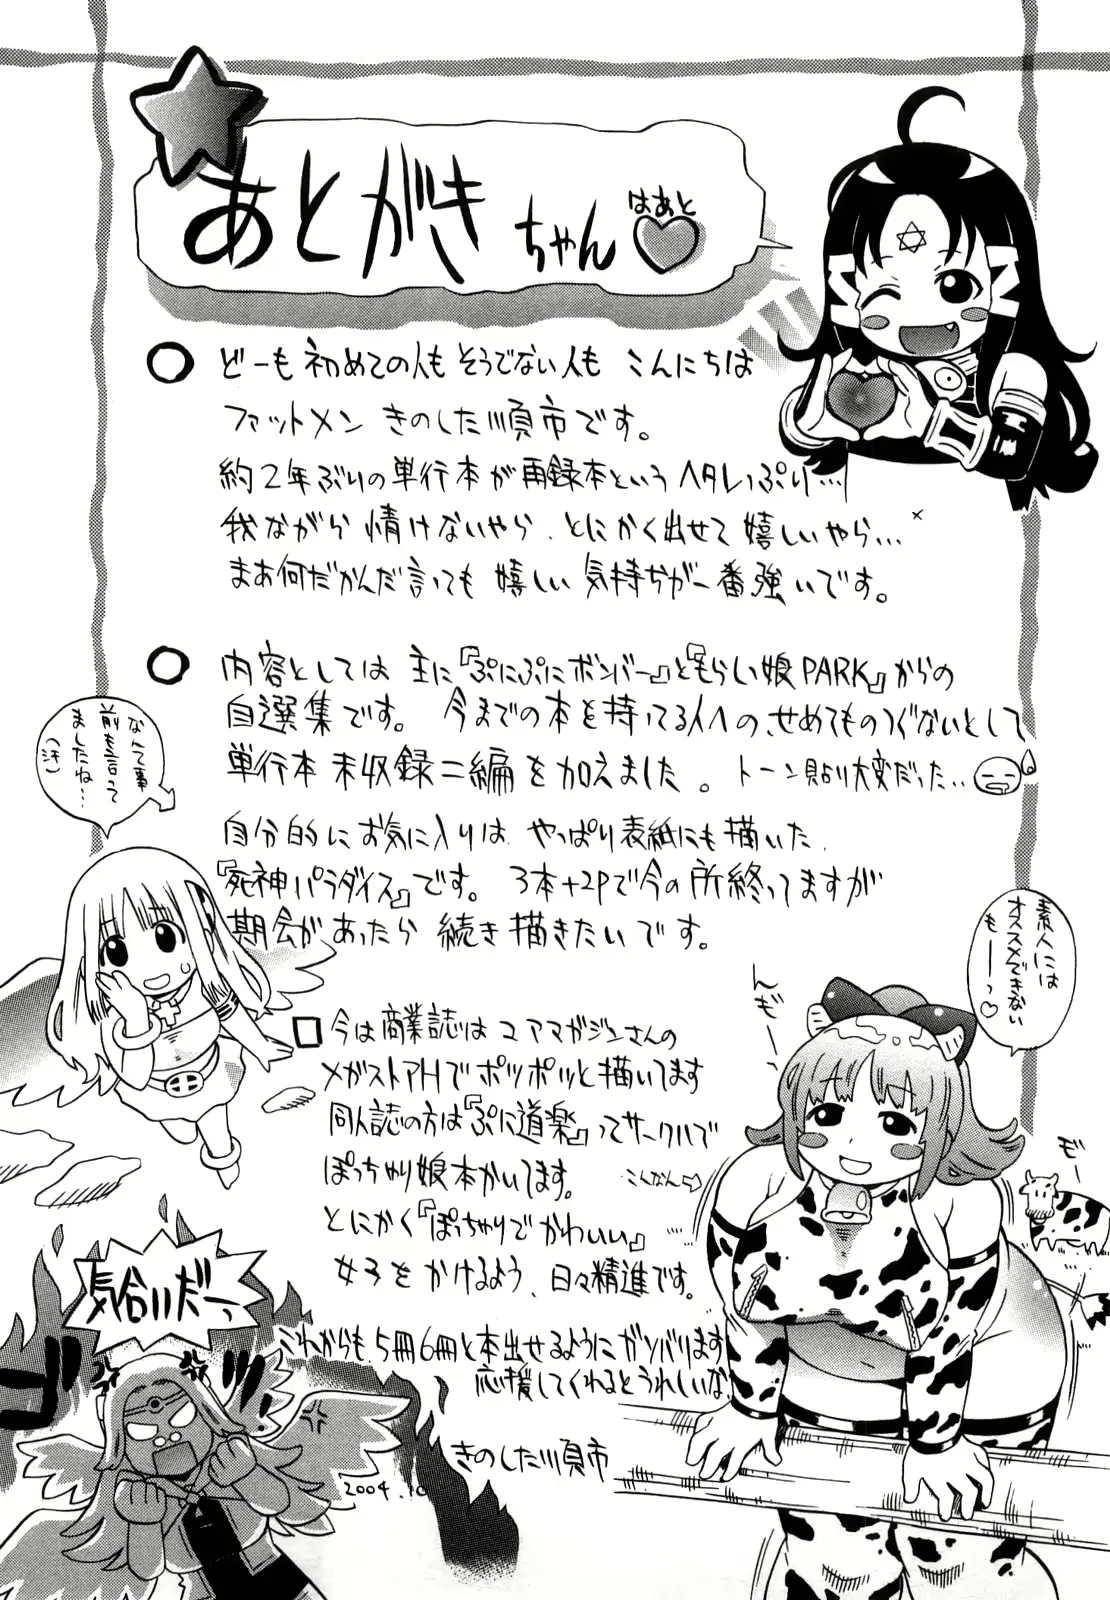 あとがきちゃん
はあと
どーも初めての人もそうでない人も こんにちは
ファットメン きのした順市です。
約2年ぶりの単行本が再録本というヘタレっぷり…
我ながら情けないやら、とにかく出せて嬉しいやら…
まあ何だかんだ言っても嬉しい気持ちが一番強いです。
内容としては主に『ぷにぷにボンバー』と『もらい娘PARK』からの
自選集です。今までの本を持ってる人への、せめてものつぐないとして
単行本未収録二編を加えました。トーン貼り大変だった…
自分的にお気に入りは、やっぱり表紙にも描いた
『死神パラダイス』です。3本+2Pで今の所終ってますが
期会があったら続き描きたいです。
なんて事
前も言って
ましたね…
(汗)
素人には
オススメできない
もーっ♡
んぎー
今は商業誌はコアマガジンさんの
メガストアHでポツポツと描いてます
同人誌の方は『ぷに道楽』ってサークルで
ぽっちゃり娘本かいてます。
こんなん⇨
とにかく『ぽっちゃりでかわいい』
女子をかけるよう、日々精進です。
モー
気合いだーっ
ゴゴ
これからも5冊6冊と本出せるようにガンバリます
応援してくれるとうれしいな。
きのした順市
2004.10